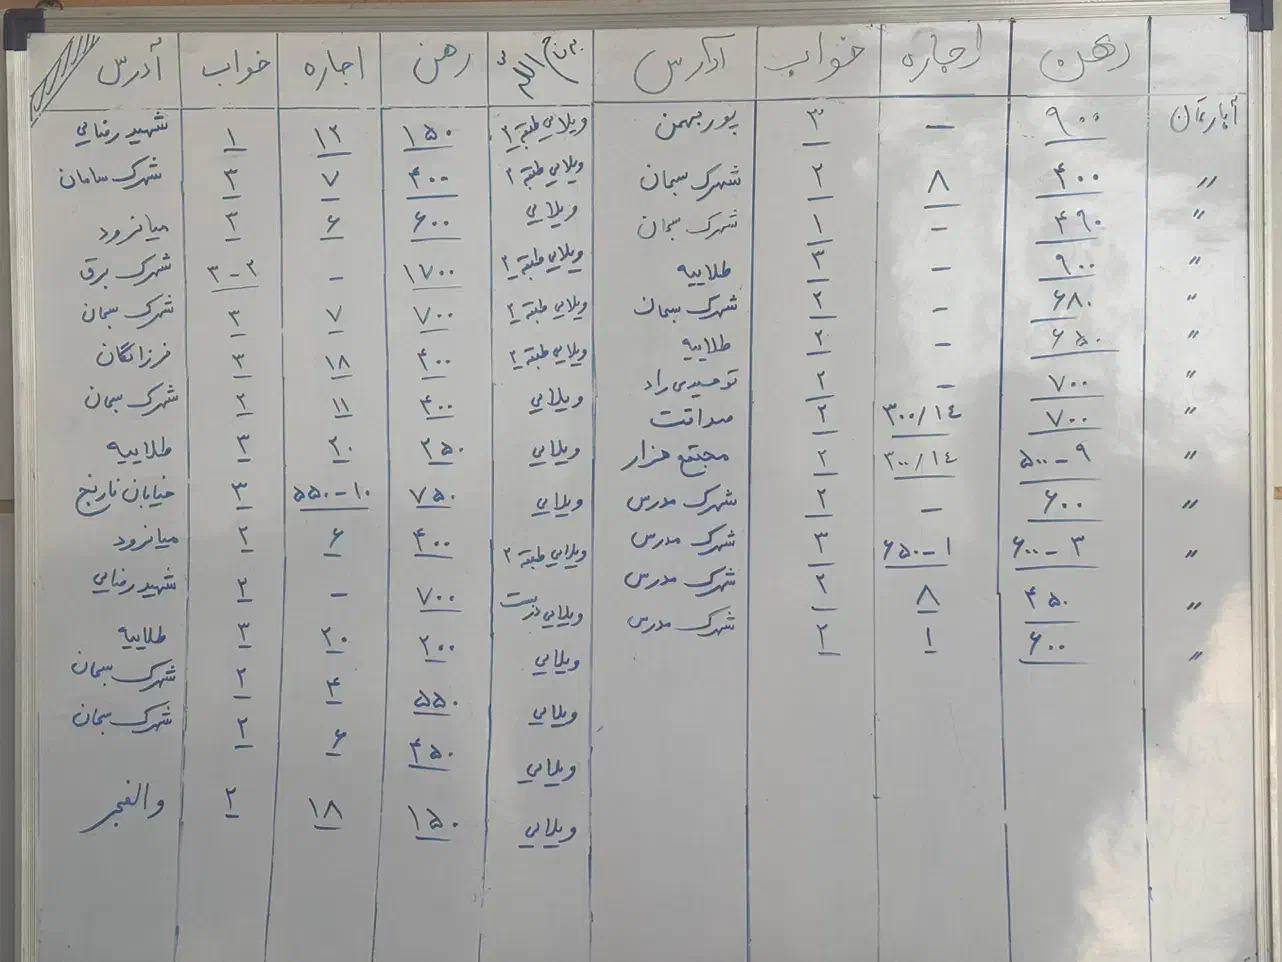 رهن اجاره خواب آدرس
آپارتمان ۹۰۰ - ۳ پور بهمن
" ۴۰۰ ۸ ۲ شهرک سبحان
" ۴۹۰ - ۱ شهرک سبحان
" ۹۰۰ - ۳ طلاییه
" ۶۸۰ - ۲ شهرک سبحان
" ۶۵۰ - ۲ طلاییه
" ۷۰۰ - ۲ توحیدی راد
" ۷۰۰ ۳۰۰/۱۴ ۲ صداقت
" ۵۰۰-۹ ۲۰۰/۱۴ ۲ مجتمع هزار
" ۶۰۰ - ۲ شهرک مدرس
" ۶۰۰-۳ ۶۵۰-۱ ۳ شهرک مدرس
" ۴۵۰ ۸ ۲ شهرک مدرس
" ۶۰۰ ۱ ۲ شهرک مدرس
رهن اجاره خواب آدرس
ویلایی طبقه ۲ ۱۵۰ ۱۲ ۱ شهید رضایی
ویلایی طبقه ۲ ۴۰۰ ۷ ۳ شهرک سامان
ویلایی ۶۰۰ ۶ ۳ میانرود
ویلایی طبقه ۲ ۱۷۰۰ - ۳-۳ شهرک برق
ویلایی طبقه ۲ ۷۰۰ ۷ ۳ شهرک سبحان
ویلایی طبقه ۲ ۴۰۰ ۱۸ ۳ فرزانگان
ویلایی ۴۰۰ ۱۱ ۲ شهرک سبحان
ویلایی ۲۵۰ ۲۰ ۳ طلاییه
ویلایی ۷۵۰ ۵۵۰-۱۰ ۳ خیابان نارنج
ویلایی طبقه ۲ ۴۰۰ ۶ ۲ میانرود
ویلایی دربست ۷۰۰ - ۲ شهید رضایی
ویلایی ۲۰۰ ۲۰ ۳ طلاییه
ویلایی ۵۵۰ ۴ ۲ شهرک سبحان
ویلایی ۴۵۰ ۶ ۲ شهرک سبحان
ویلایی ۱۵۰ ۱۸ ۲ والفجر